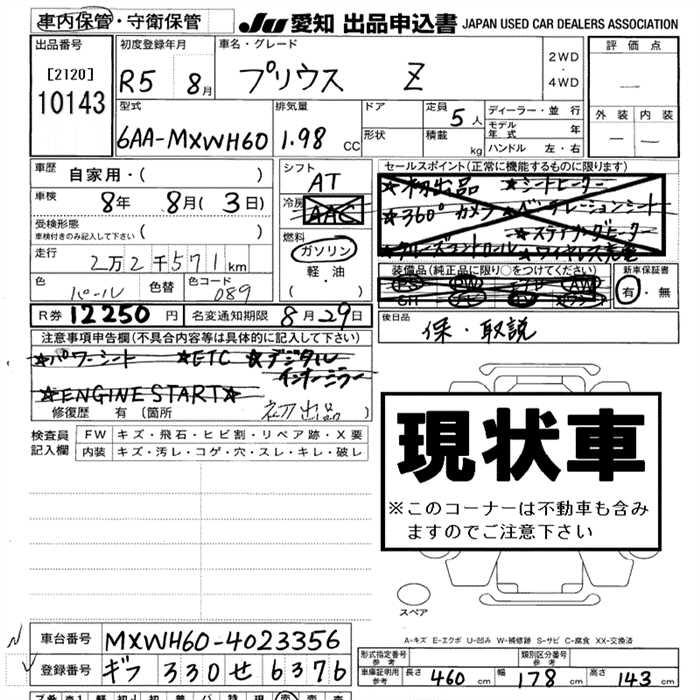 車内保管・守衛保管
JU 愛知 出品申込書 JAPAN USED CAR DEALERS ASSOCIATION
出品番号 [2120] 10143
初度登録年月 R5 8月
車名・グレード プリウス Z
2WD・4WD
評価点 —
外装 — 内装 —
型式 6AA-MXWH60
排気量 1.98 CC
ドア
形状
定員 5人
積載 kg
ディーラー・並行
モデル年式 年
ハンドル 左・右
車歴 自家用・( )
車検 8年 8月(3日)
受検形態 車検付きのみ記入して下さい ( )
走行 2万2千571km
色 パール 色替 色コード 089
シフト AT
冷房 AAC
燃料 ガソリン・軽油・( )
セールスポイント(正常に機能するものに限ります)
★初出品 ★シートヒーター
★360°カメラ
★ステアリングヒーター
★クルーズコントロール ★ワイヤレス充電
装備品(純正品に限り〇をつけてください)
PS AW
SR ナビ
新車保証書 有・無
R券 12250円 名変通知期限 8月29日
後日品 保・取説
注意事項申告欄(不具合内容等は具体的に記入して下さい)
★パワーシート ★ETC ★デジタルインナーミラー
★ENGINE START★
修復歴 有(箇所 初出品)
検査員記入欄
FW キズ・飛石・ヒビ割・リペア跡・X要
内装 キズ・汚レ・コゲ・穴・スレ・キレ・破レ
現状車
※このコーナーは不動車も含みますのでご注意下さい
スペア
A-キズ E-エクボ U-凹み W-補修跡 S-サビ C-腐食 XX-交換済
車台番号 MXWH60-4023356
登録番号 ギフ 330 せ 6376
形式指定番号 参考
類別区分番号 参考
車庫証明用 参考 長さ 460cm 幅 178cm 高さ 143cm